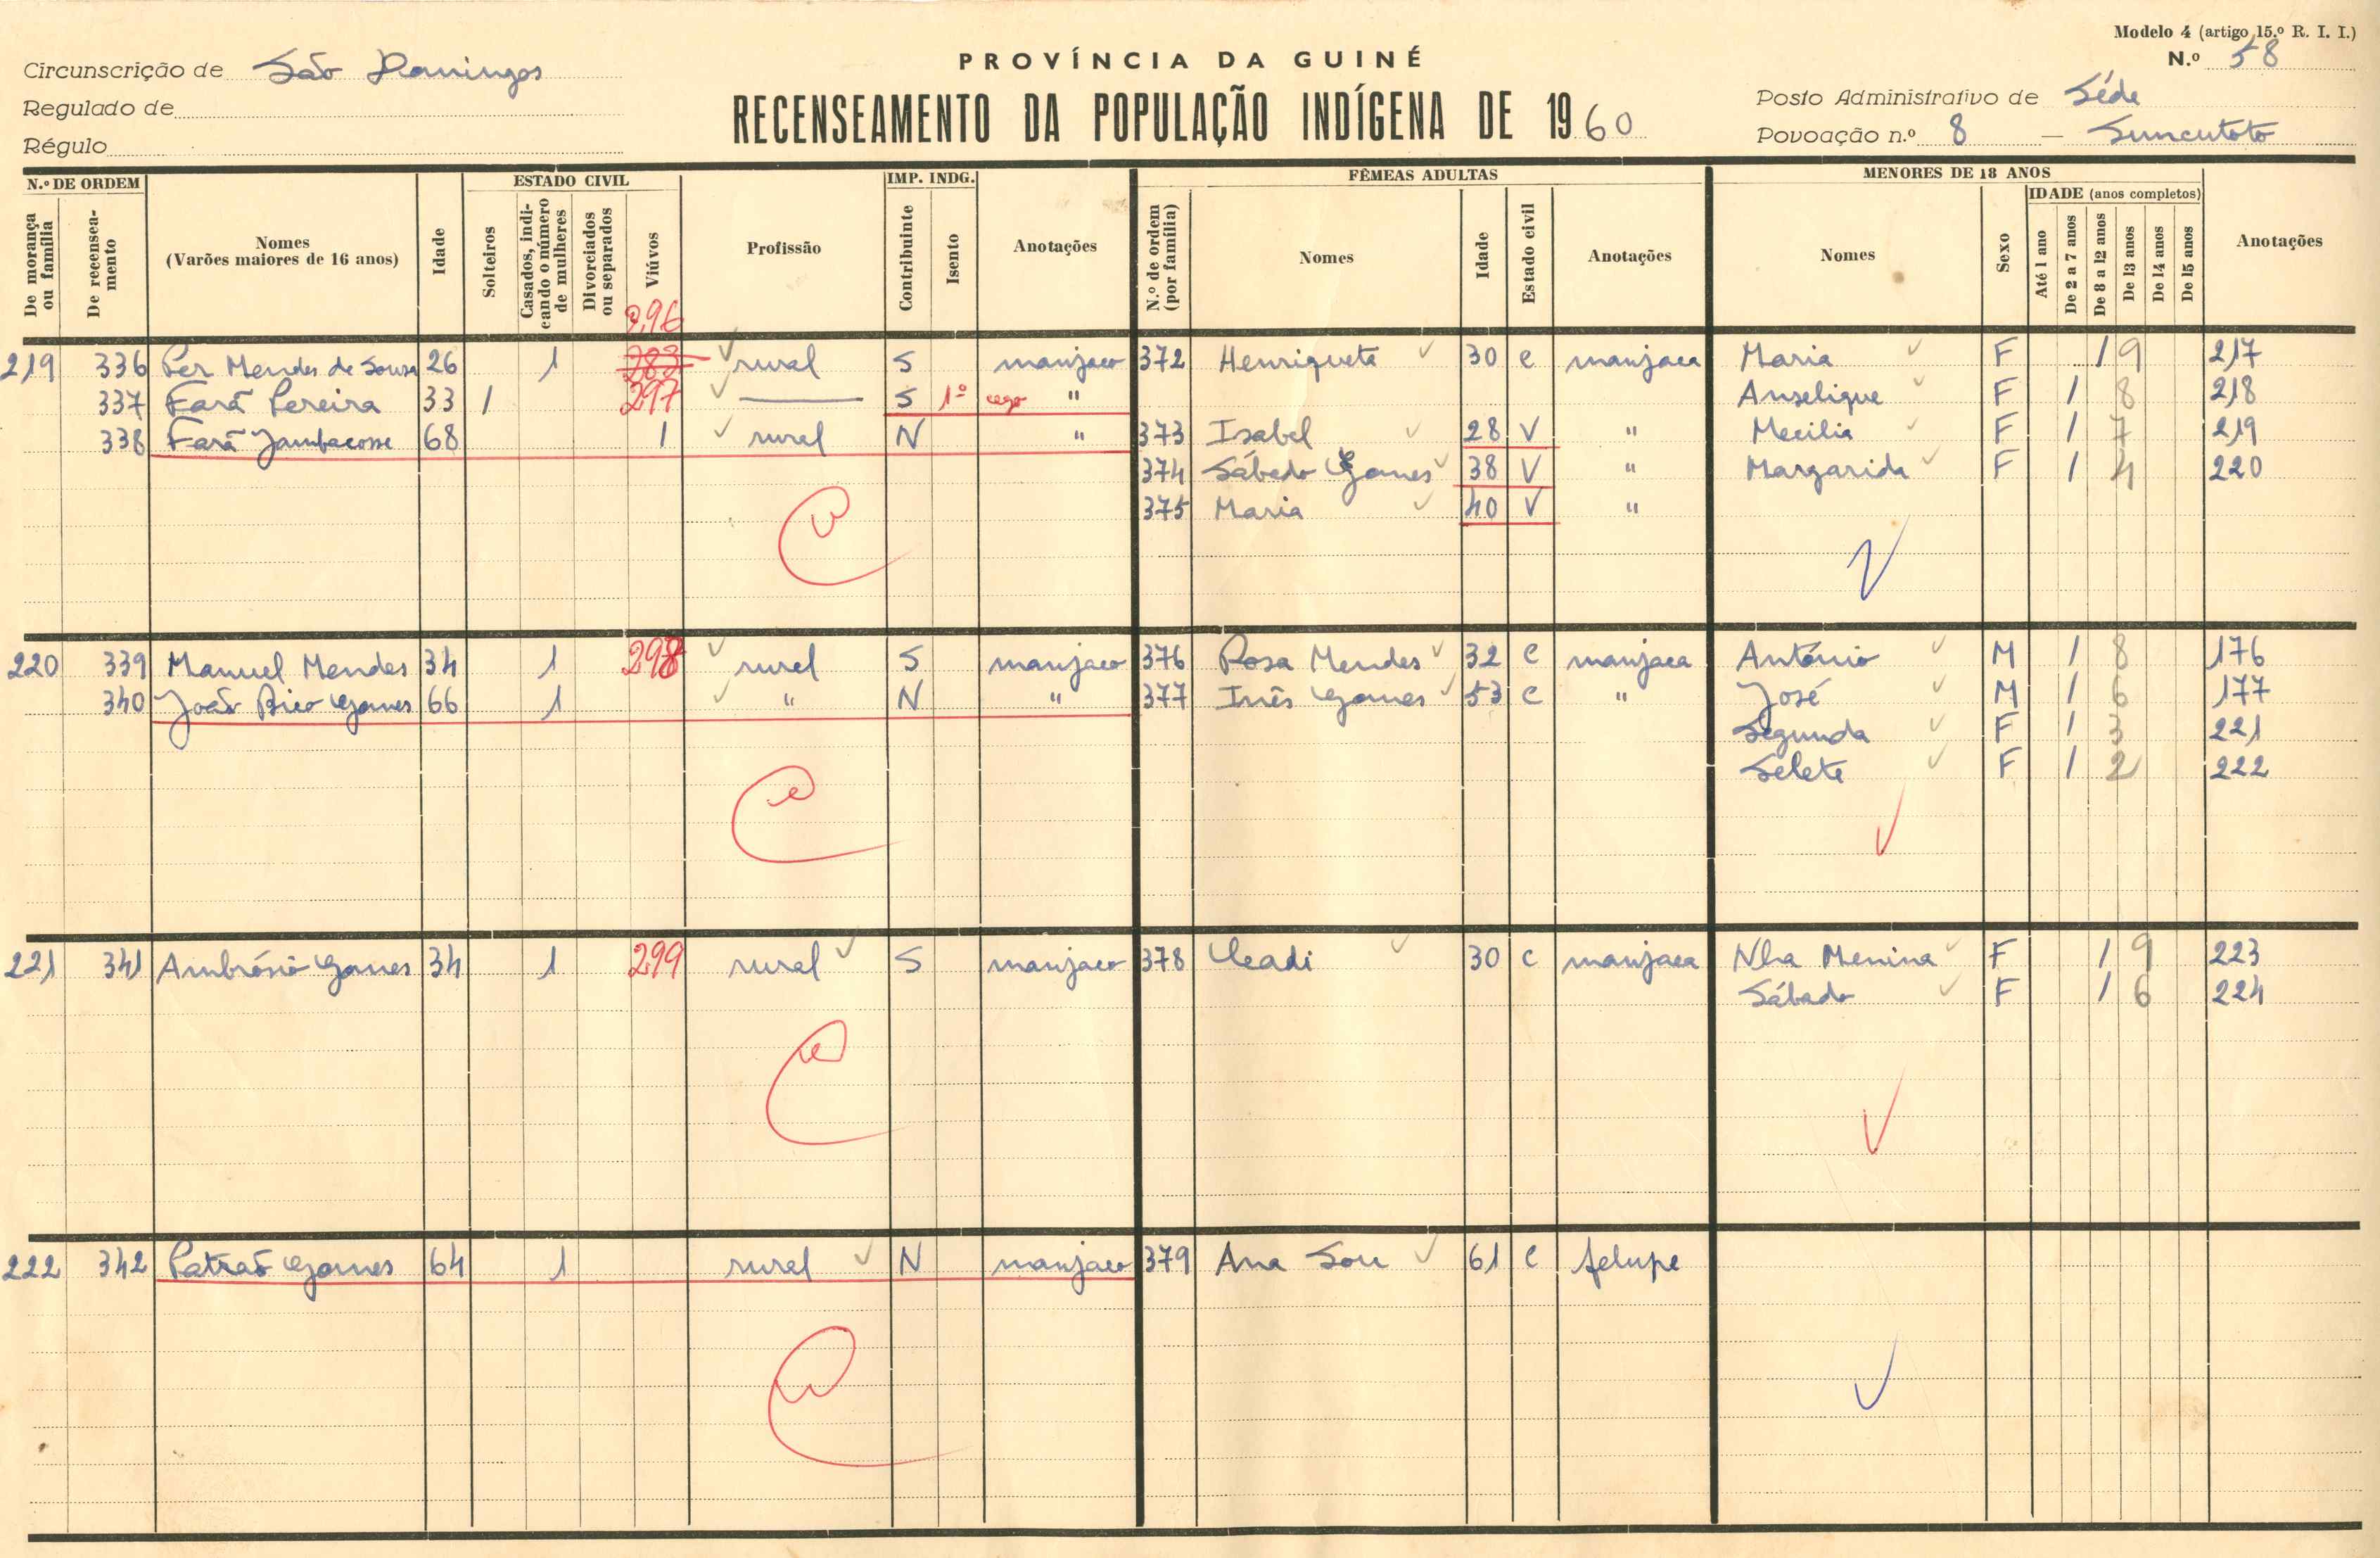 Modelo 4 (artigo 15.º R. I. I.)
N.º 58
PROVÍNCIA DA GUINÉ
RECENSEAMENTO DA POPULAÇÃO INDÍGENA DE 1960
Circunscrição de São Domingos
Regulado de
Régulo
Posto Administrativo de Séde
Povoação n.º 8 — Suncutoto
N.º DE ORDEM
De morança ou família
De recenseamento
Nomes
(Varões maiores de 16 anos)
Idade
ESTADO CIVIL
Solteiros
Casados, indicando o número de mulheres
Divorciados ou separados
Viúvos
Profissão
IMP. INDG.
Contribuinte
Isento
Anotações
FÊMEAS ADULTAS
N.º de ordem (por família)
Nomes
Idade
Estado civil
Anotações
MENORES DE 18 ANOS
Nomes
Sexo
IDADE (anos completos)
Até 1 ano
De 2 a 7 anos
De 8 a 12 anos
De 13 anos
De 14 anos
De 15 anos
Anotações
296
219 336 Per Mendes de Sousa 26 1 283 rural S manjaco 372 Henriqueta 30 c manjaca Maria F 1 9 217
337 Fará Pereira 33 1 297 — S 1º cego " Anselique F 1 8 218
338 Fará Jambacosse 68 1 rural N " 373 Isabel 28 V " Mecilia F 1 7 219
374 Sábado Gomes 38 V " Margarida F 1 4 220
375 Maria 40 V "
220 339 Manuel Mendes 34 1 298 rural S manjaco 376 Rosa Mendes 32 c manjaca António M 1 8 176
340 João Bico Gomes 66 1 " N " 377 Inês Gomes 53 c " José M 1 6 177
Segunda F 1 3 221
Selete F 1 2 222
221 341 Ambrósio Gomes 34 1 299 rural S manjaco 378 Cadi 30 c manjaca Nha Menina F 1 9 223
Sábado F 1 6 224
222 342 Patrão Gomes 64 1 rural N manjaco 379 Ana Sou 61 c felupe